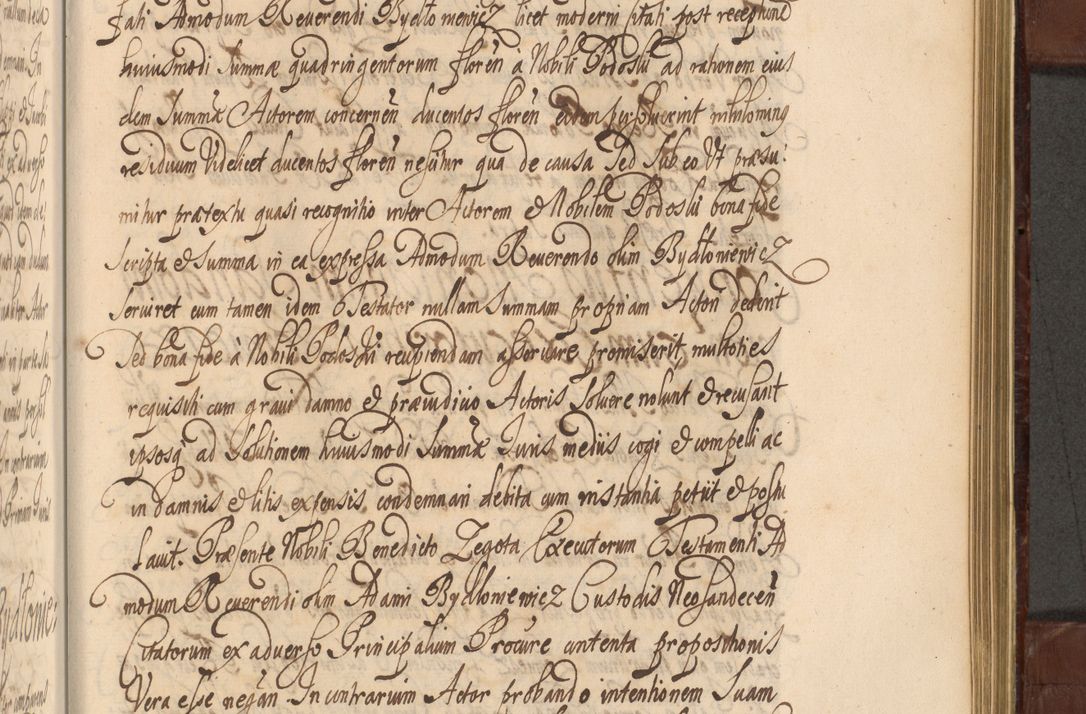 fati Admodum Reverendi Bydło niewicz licet moderni citati post receptione
huiusmodi Summæ quadringentorum floren̄ à Nobili Podoski ad rationem eius
dem Summæ Actorem concernen̄ ducentos floren̄ eidem persolverint nihiloming
residuum Videlicet ducentos floren̄ nescitur qua de causa Sed sub eo Vt præsu:
mitur prætextu quasi recognitio inter Actorem et Nobilem Podoski bona fide
scripta et summa in ea expressa Admodum Reverendo olim Bydłoniewicz
serviret cum tamen idem Testator nullam Summam propriam Actori dederit
Sed bona fide à Nobili Podoski recipiendam asservare promiserit, multoties
requisiti cum gravi damno et præiudicio Actoris Solvere nolunt et recusant
ipsosq ad Solutionem huiusmodi Summæ Iuris mediis cogi et compelli ac
in damnis et litis expensis condemnari debita cum instantia petiit et postu
lavit. Præsente Nobili Benedicto Zegota Executorum Testamenti Ad
modum Reverendi olim Adami Bydłoniewicz Custodis Neosandecen̄
Citatorum ex adverso Principalium Procure contenta propositionis
Vera esse negan̄ In contrarium Actor probando intentionem Suam